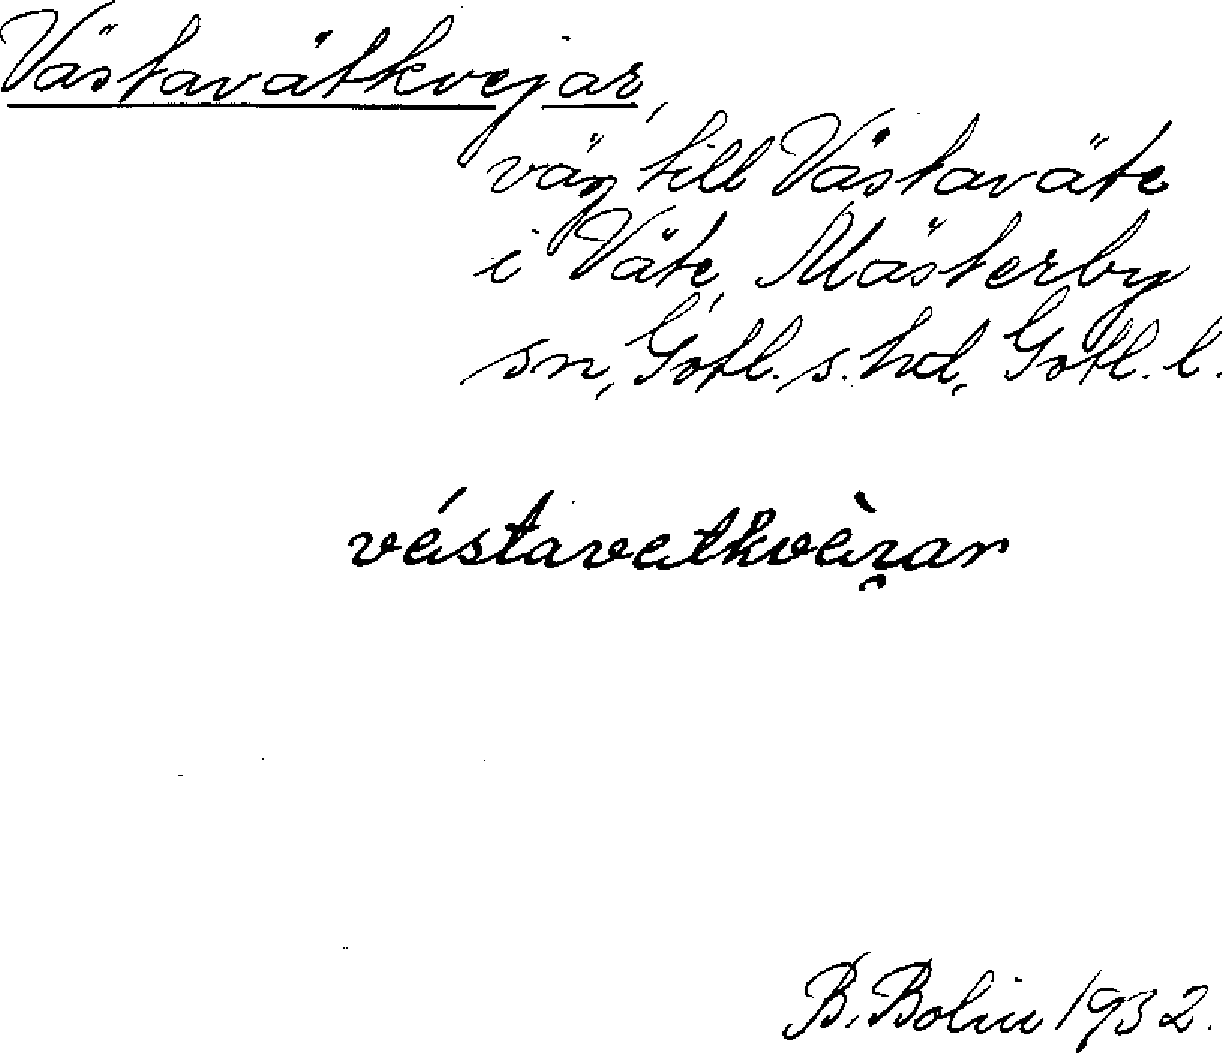 Västavätkvejar,
väg till Västaväte
i Väte, Mästerby
sn, Gotl. s. hd, Gotl. l.
B. Bolin 1932.